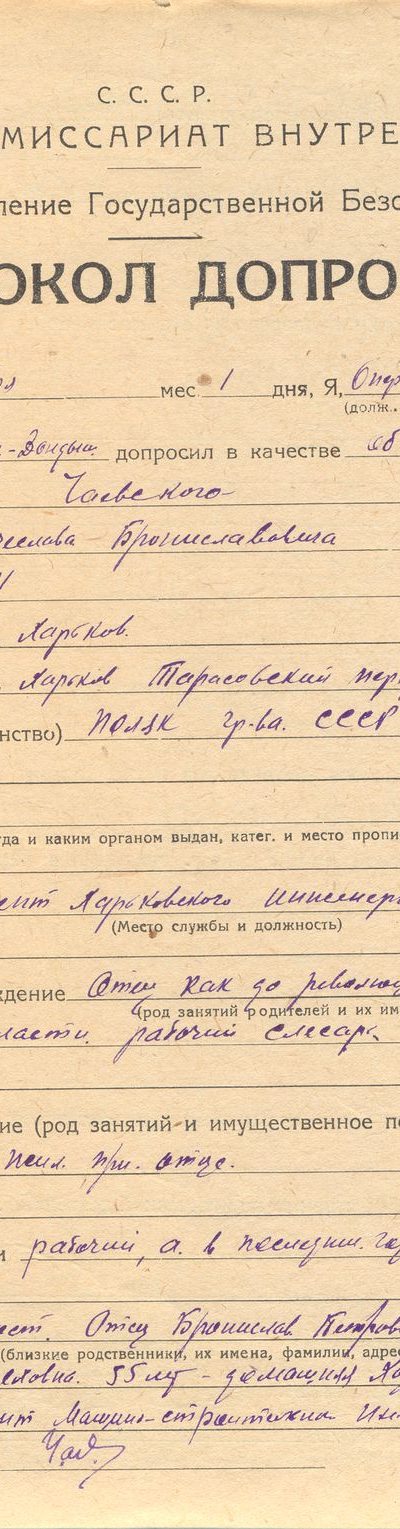 С. С. С. Р.
МИССАРИАТ ВНУТРЕ
ление Государственной Безо
ОКОЛ ДОПРО
мес 1 дня, Я, Опер
(долж.
допросил в качестве об
Чаевского
еслава Брониславовича
Харьков.
Харьков Тарасовский пер
нство) поляк гр-ва. СССР
уда и каким органом выдан, катег. и место пропи
ент Харьковского инженер
(Место службы и должность)
ждение Отец как до револю
(род занятий родителей и их им
ласти. рабочий слесарь
ие (род занятий и имущественное по
жил. при. отце.
и рабочий, а. в последн. го
Отец Бронислав Петров
(близкие родственники, их имена, фамилии, адрес
55 лет - домашняя
ент Машино-строительн. Ин